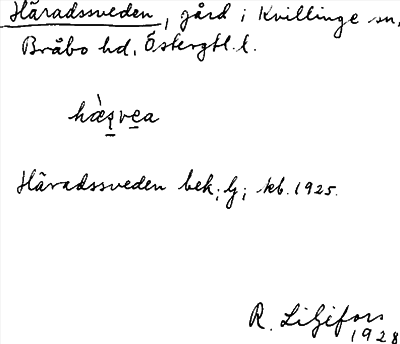 Häradssveden, gård i Kvillinge sn,
Bråbo hd, Östergtl. l.
hæ̀s̱ve̱a
Häradssveden bek. Lj; kb. 1925.
R. Liljefors
1928